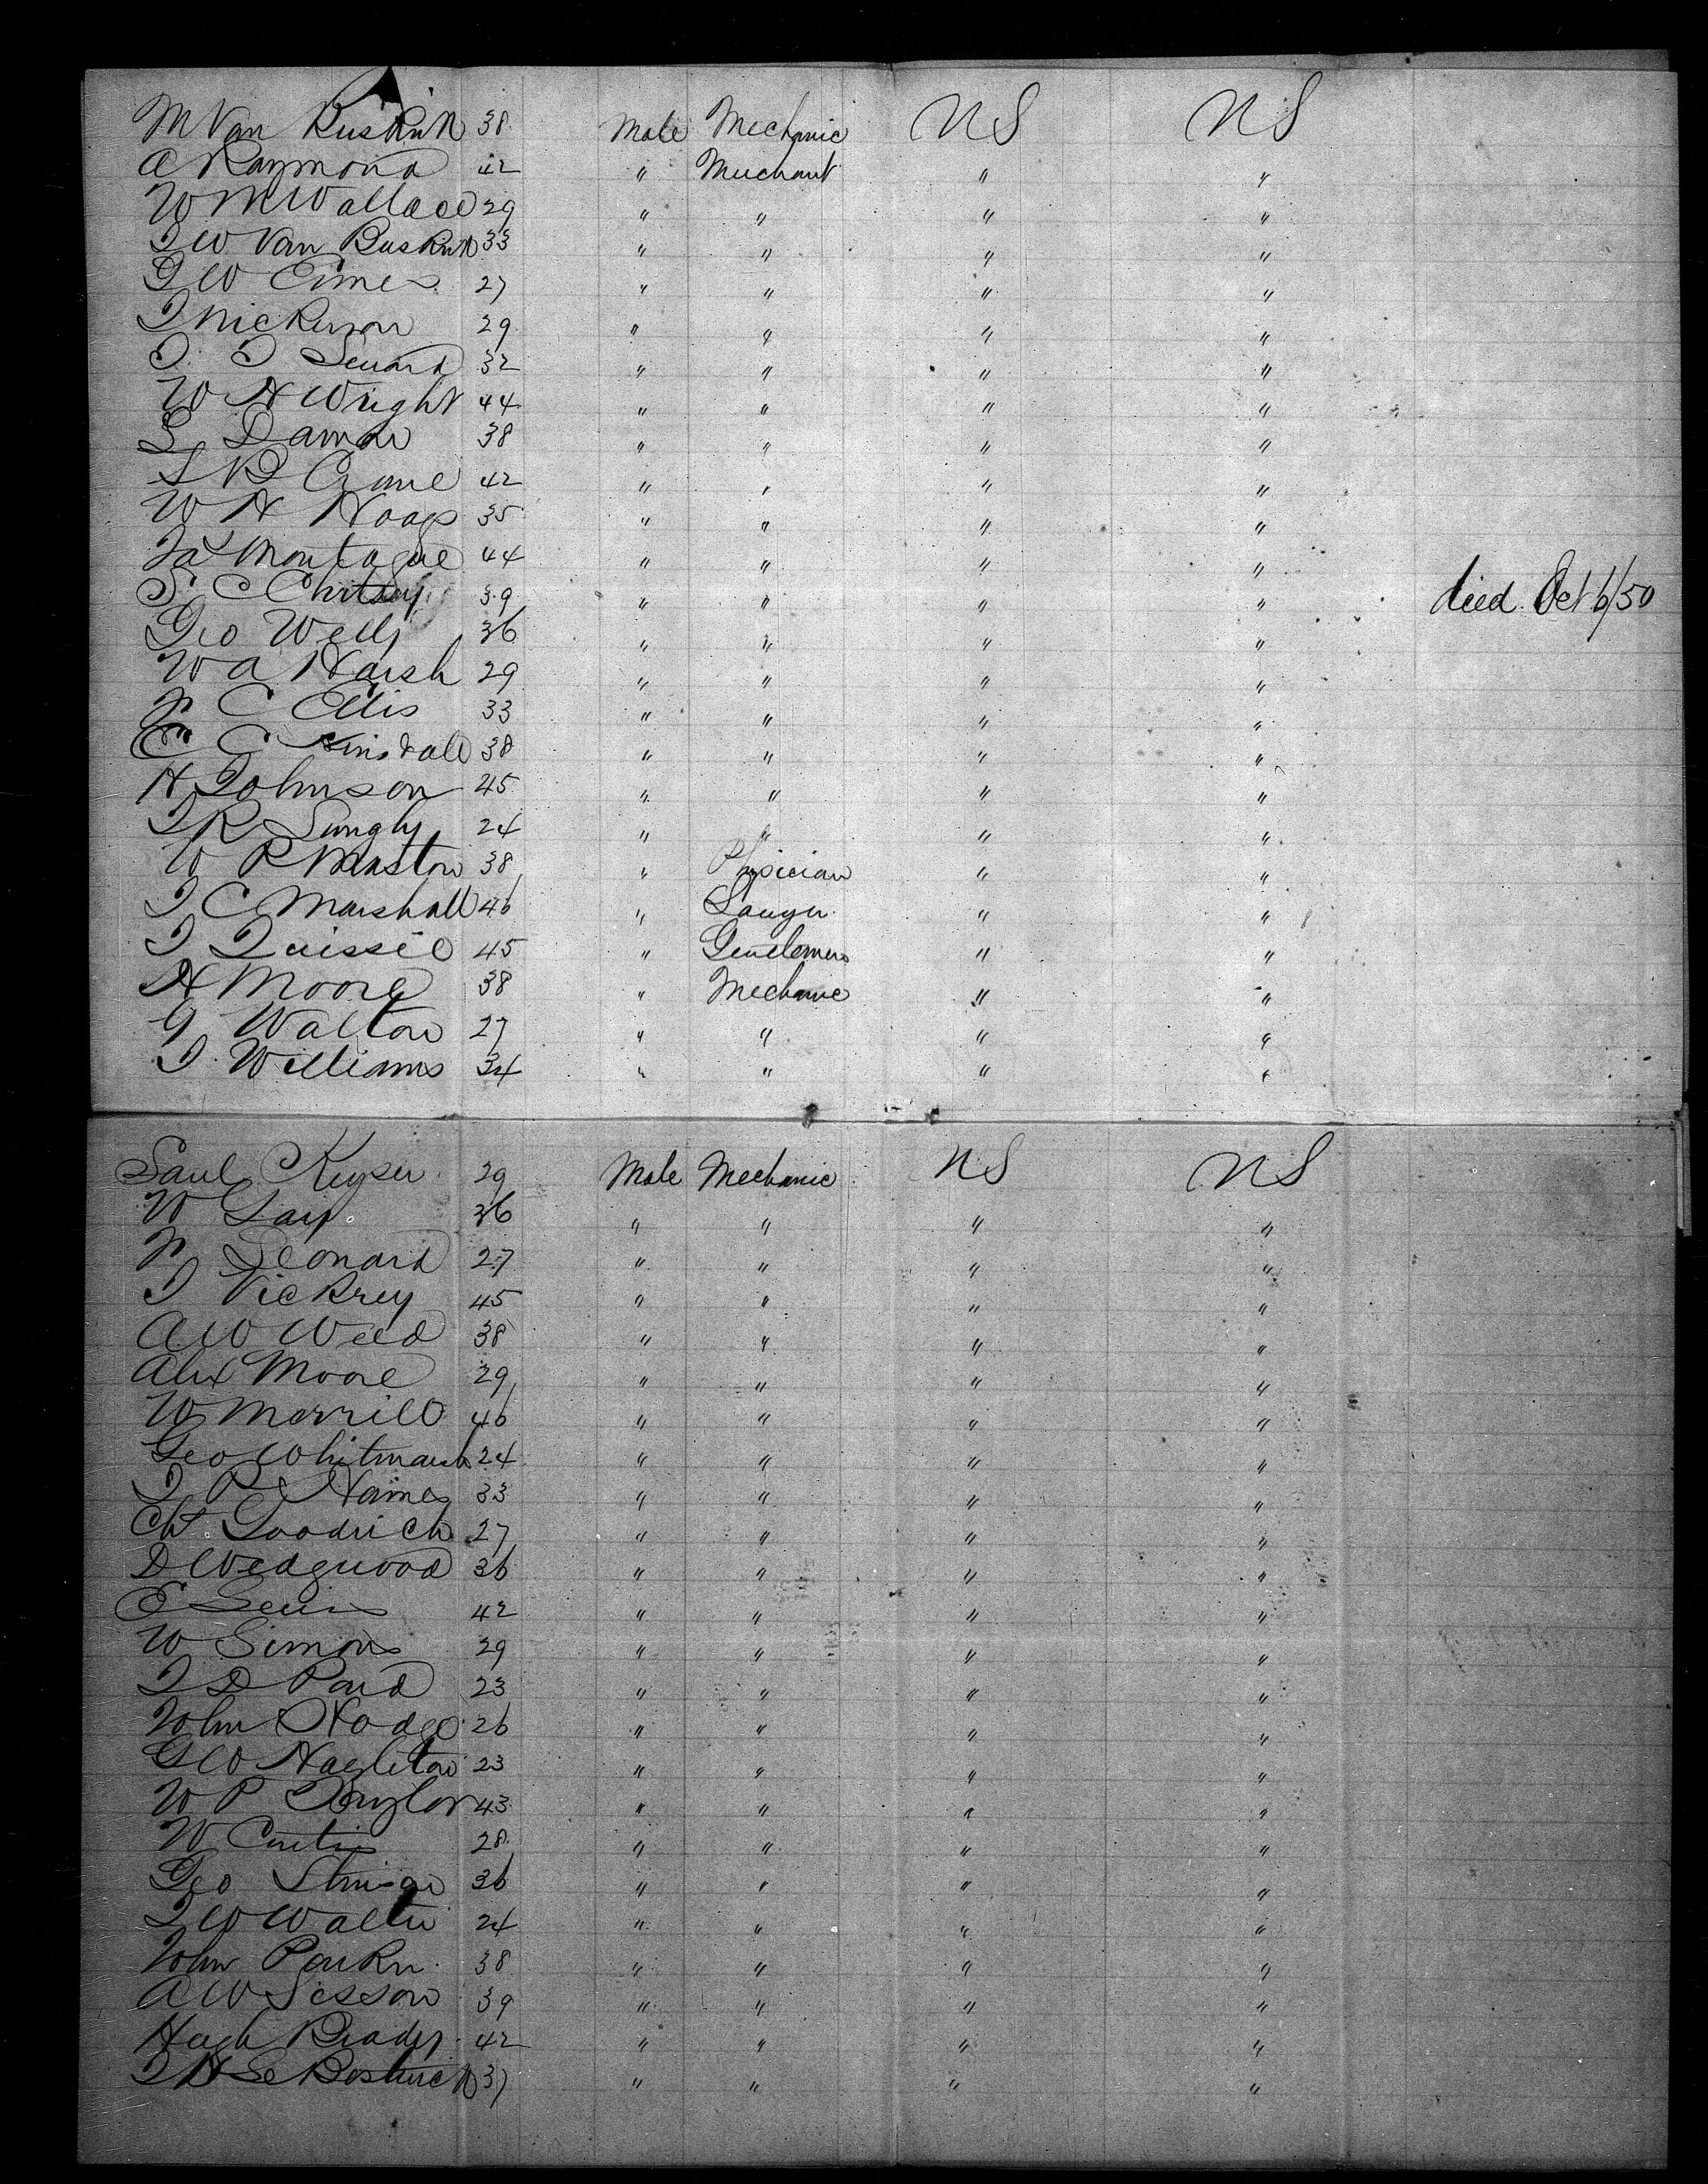 M Van Buskirk 38 Male Mechanic US US
A Raymond 42 " Merchant " "
W M Wallace 29 " " " "
J W Van Buskirk 33 " " " "
G W Eimes 27 " " " "
J Nickerson 29 " " " "
J. J Seward 32 " " " "
W H Wright 44 " " " "
L Damon 38 " " " "
S B Crane 42 " " " "
W H Hoags 35 " " " "
Jas Montague 44 " " " "
S C 39 " " " " died Oct 6/50
Geo Wells 36 " " " "
W A Harsh 29 " " " "
C Ellis 33 " " " "
E C 38 " " " "
H Johnson 45 " " " "
J R Singly 24 " " " "
W P 38 " Physician " "
J C Marshall 46 " Lawyer " "
J 45 " Gentlemen " "
H Moore 38 " Mechanic " "
G Walton 27 " " " "
J. Williams 34 " " " "
Saul Keyser 29 Male Mechanic US US
W Gay 36 " " " "
Leonard 27 " " " "
J Vickrey 45 " " " "
A W Weed 38 " " " "
Alex Moore 29 " " " "
W Merrill 46 " " " "
Geo Whitmarsh 24 " " " "
J P Hames 33 " " " "
Chs Goodrich 27 " " " "
D Wedgwood 36 " " " "
E Lewis 42 " " " "
W Simons 29 " " " "
J D Pard 23 " " " "
John Hodge 26 " " " "
G W Hagleton 23 " " " "
W P Taylor 43 " " " "
W Curtis 28 " " " "
Geo 36 " " " "
J W Walter 24 " " " "
John Parker 38 " " " "
A W Sisson 39 " " " "
Hugh Brady 42 " " " "
J H 37 " " " "